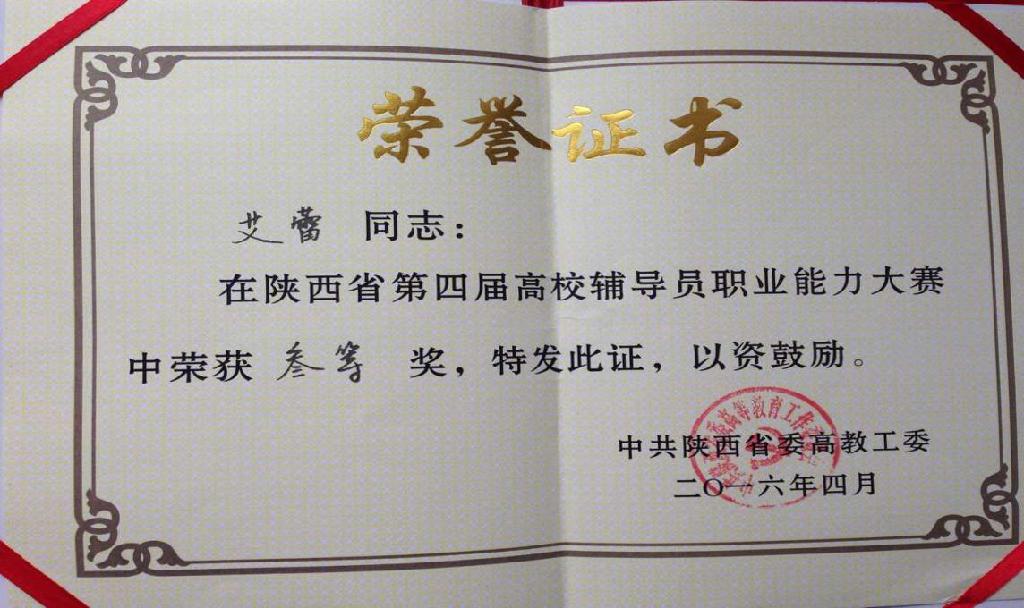 荣誉证书
艾蕾 同志：
在陕西省第四届高校辅导员职业能力大赛
中荣获 叁等 奖，特发此证，以资鼓励。
中共陕西省委高教工委
二〇一六年四月